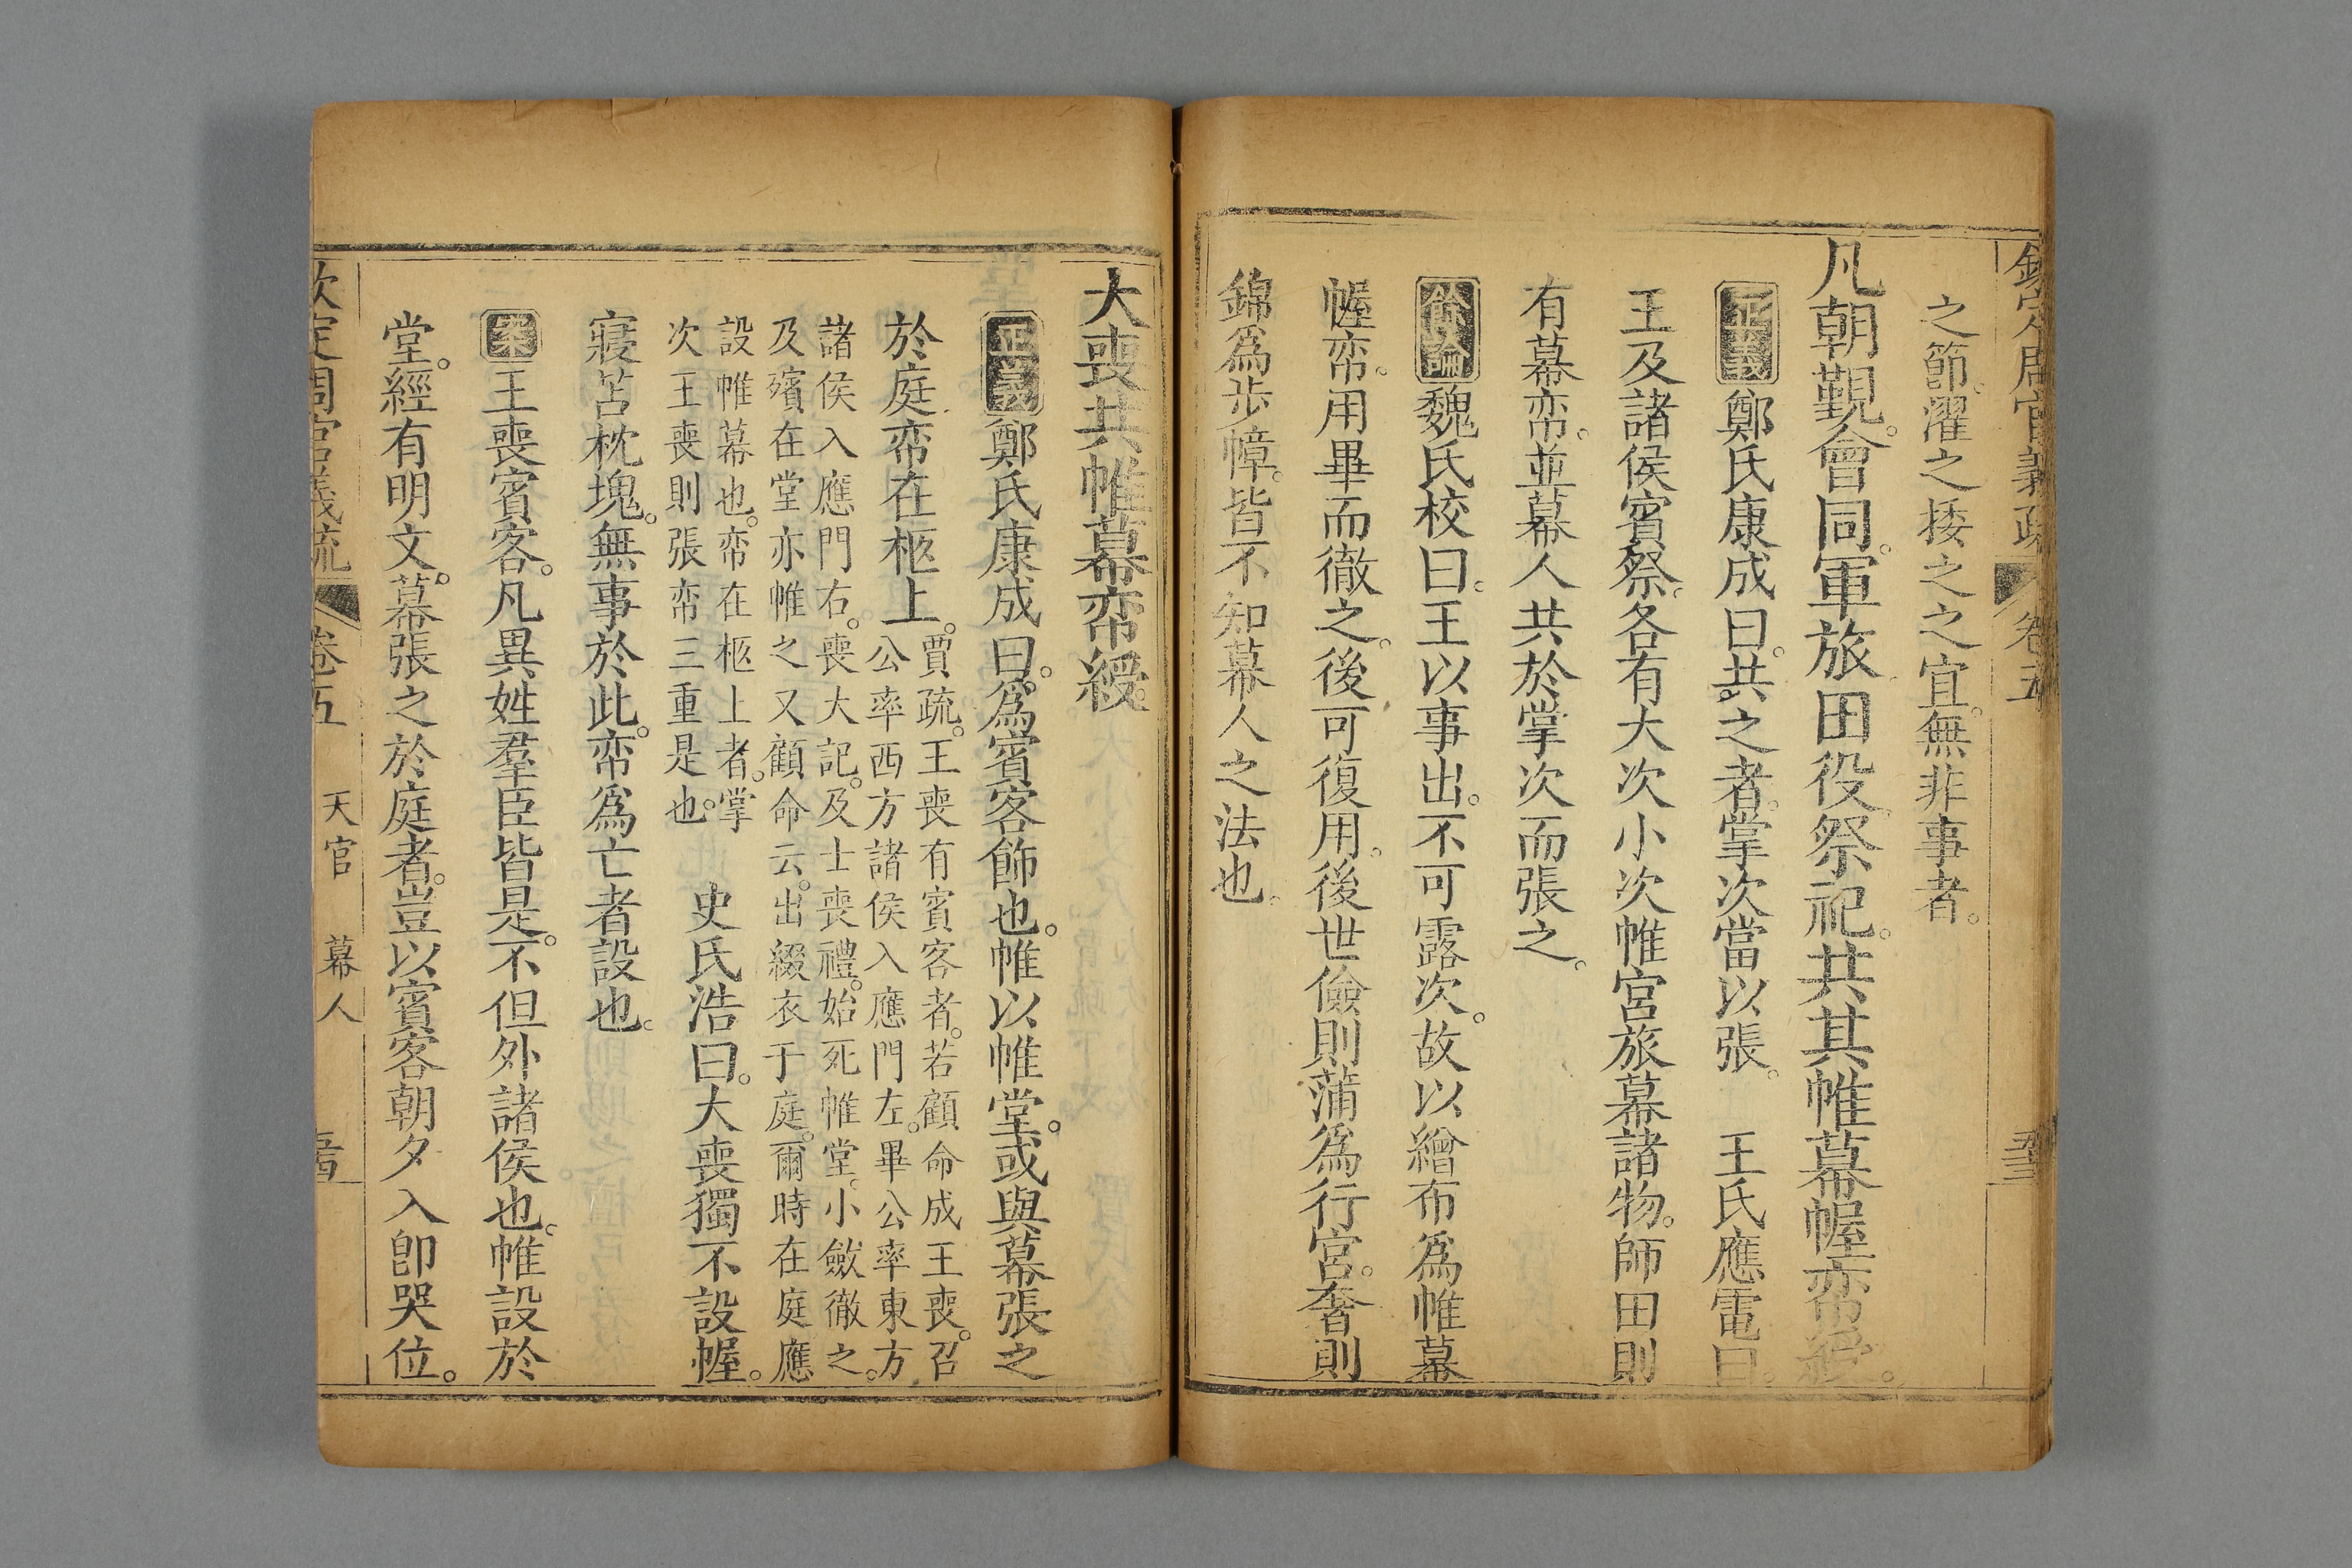 欽定周官義疏 卷五
之節。濯之捼之之宜。無非事者。
凡朝覲。會同。軍旅。田役。祭祀。共其帷幕幄帟綬。
正義鄭氏康成曰。共之者。掌次當以張。 王氏應電曰。
王及諸侯賓祭。各有大次小次帷宮旅幕諸物。師田則
有幕帟。並幕人共於掌次而張之。
餘論魏氏校曰。王以事出。不可露次。故以繒布爲帷幕
幄帟。用畢而徹之。後可復用。後世儉則蒲爲行宮。奢則
錦爲步幛。皆不知幕人之法也。
大喪共帷幕帟綬。
正義鄭氏康成曰。爲賓客飾也。帷以帷堂。或與幕張之
於庭。帟在柩上。
賈疏。王喪有賓客者。若顧命成王喪。召
公率西方諸侯入應門左。畢公率東方
諸侯入應門右。喪大記。及士喪禮。始死帷堂。小斂徹之。
及殯在堂亦帷之。又顧命云。出綴衣于庭。爾時在庭應
設帷幕也。帟在柩上者。掌
次王喪則張帟三重是也。
史氏浩曰。大喪獨不設幄。
寢苫枕塊。無事於此。帟爲亡者設也。
案王喪賓客。凡異姓羣臣皆是。不但外諸侯也。帷設於
堂。經有明文。幕張之於庭者。豈以賓客朝夕入卽哭位。
欽定周官義疏 卷五 天官 幕人